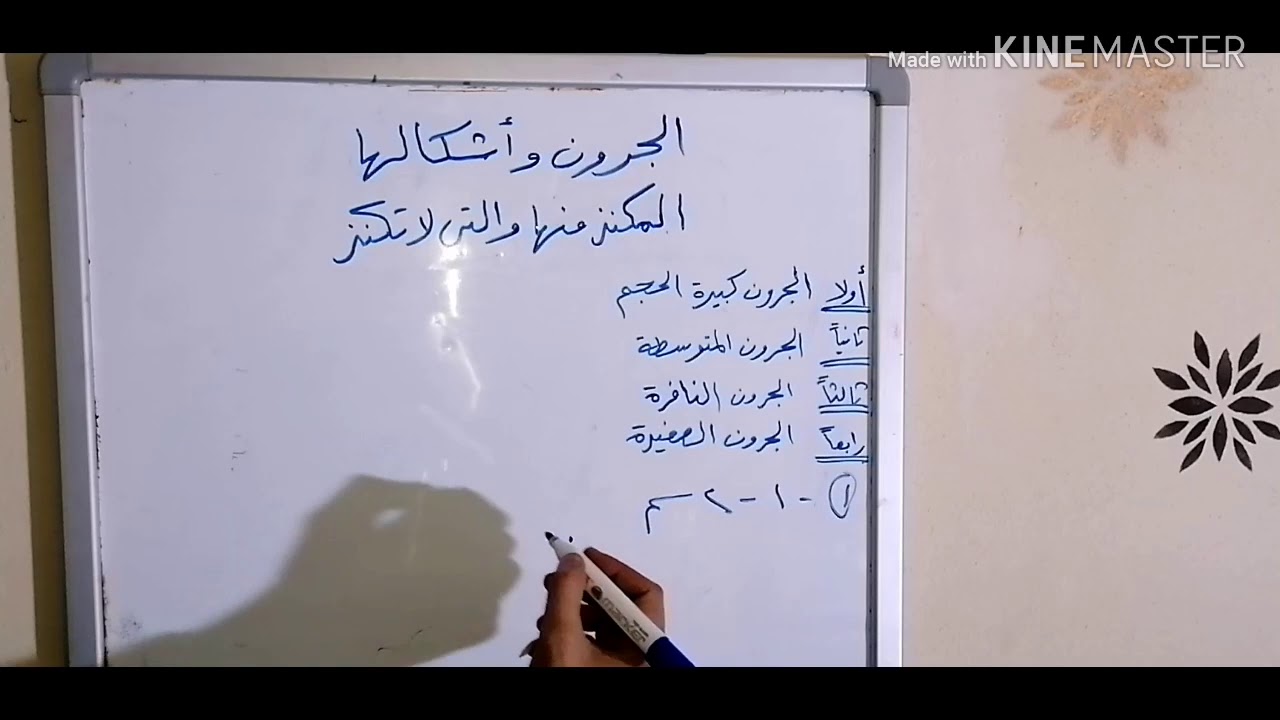 Made with KINEMASTER
الجرون وأشكالها
المكنز منها والتي لا تكنز
أولا الجرون كبيرة الحجم
ثانياً الجرون المتوسطة
ثالثاً الجرون النافرة
رابعاً الجرون الصغيرة
١ - ١ - ٢ سم